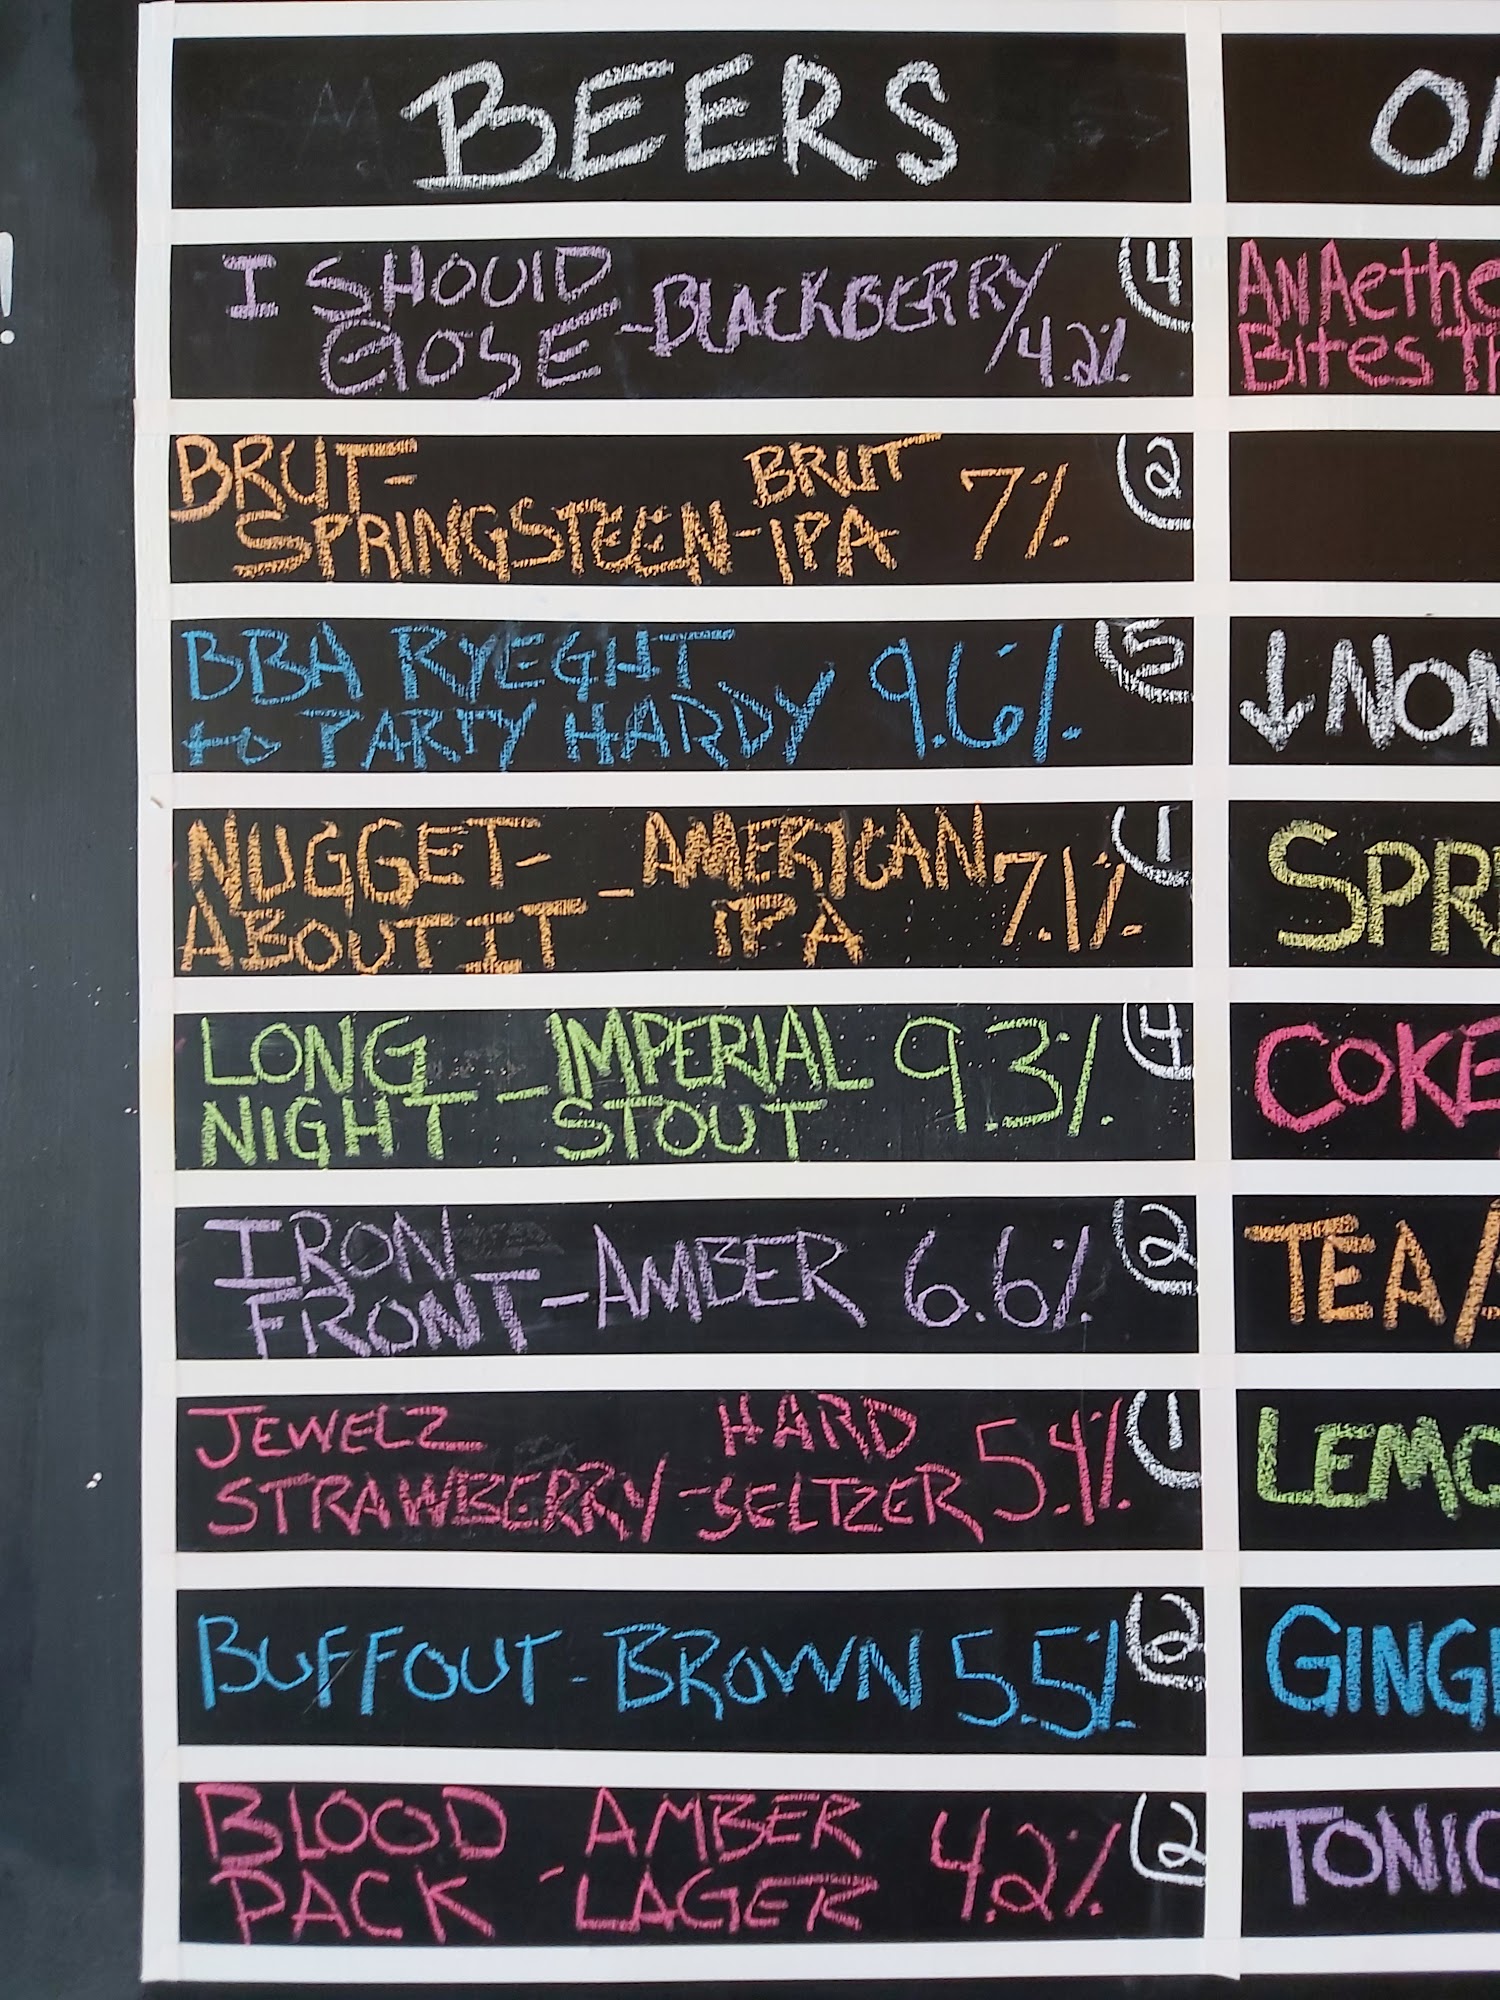 !
BEERS
I SHOULD
GOSE -BLACKBERRY/4.2% 4
BRUT-
SPRINGSTEEN- BRUT IPA 7% 2
BBA RYEGHT
to PARTY HARDY 9.6% 5
NUGGET-
ABOUTIT - AMERICAN IPA 7.1% 1
LONG
NIGHT - IMPERIAL STOUT 9.3% 4
IRON
FRONT -AMBER 6.6% 2
JEWELZ
STRAWBERRY - HARD SELTZER 5.4% 1
BUFFOUT - BROWN 5.5% 2
BLOOD
PACK - AMBER LAGER 4.2% 2
AnAethe
Bites Th
↓NON
SPRI
COKE
TEA/
LEMO
GING
TONIC